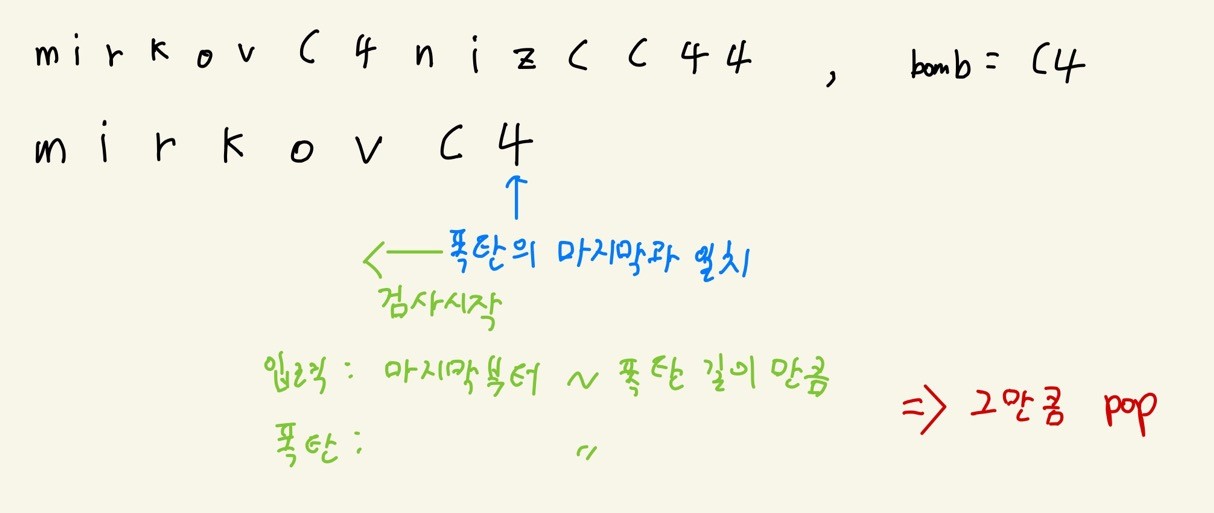 mirkovC4nizCC44 , bomb = C4
mirkovC4
↑
← 폭탄의 마지막과 일치
검사시작
입력 : 마지막부터 ~ 폭탄 길이 만큼
폭탄 : 〃
⇒ 그만큼 pop